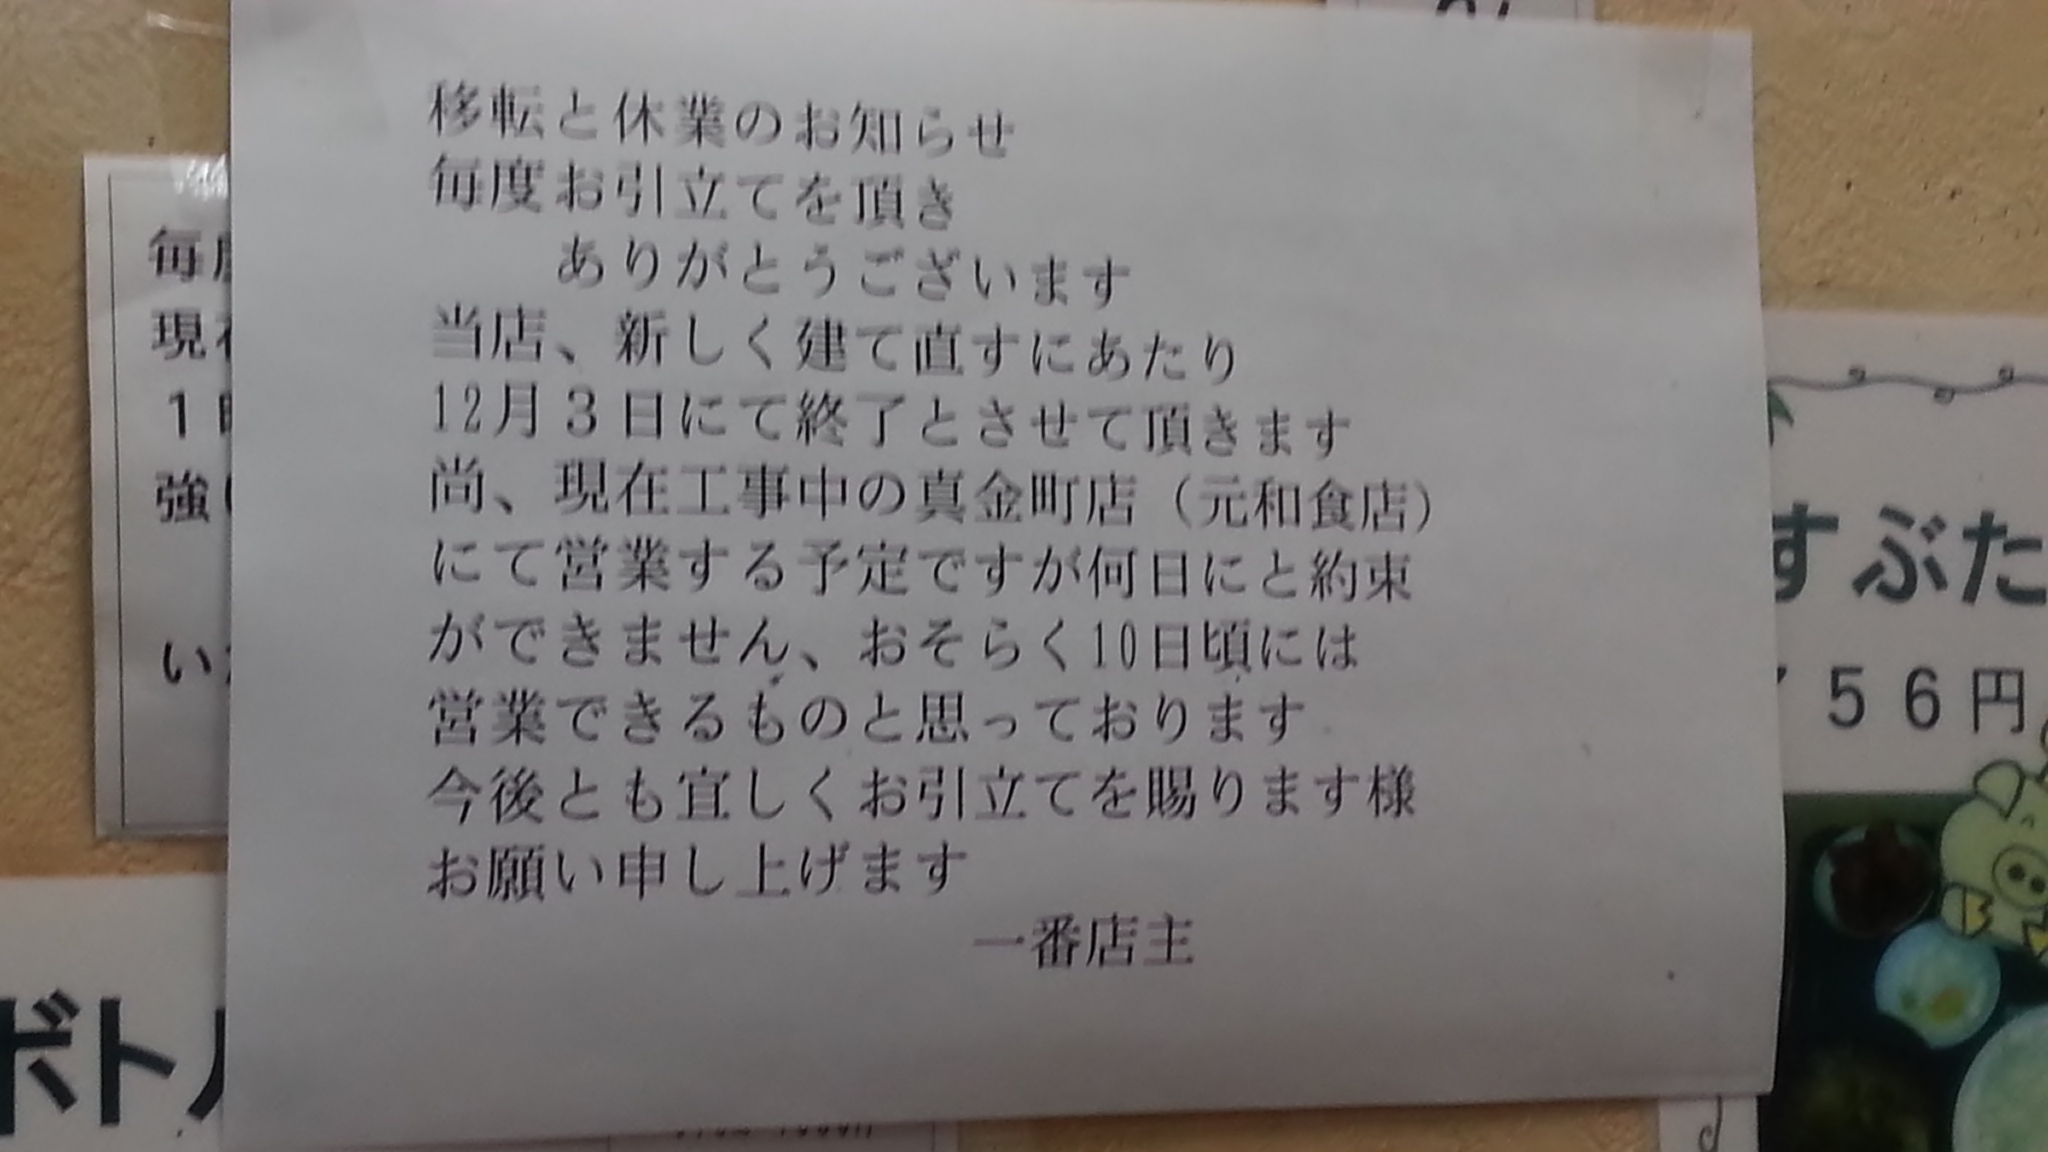 移転と休業のお知らせ
毎度お引立てを頂き
ありがとうございます
当店、新しく建て直すにあたり
12月３日にて終了とさせて頂きます
尚、現在工事中の真金町店（元和食店）
にて営業する予定ですが何日にと約束
ができません、おそらく10日頃には
営業できるものと思っております
今後とも宜しくお引立てを賜ります様
お願い申し上げます
一番店主
毎
現在
１
強
い
ボトル
すぶた
５６円